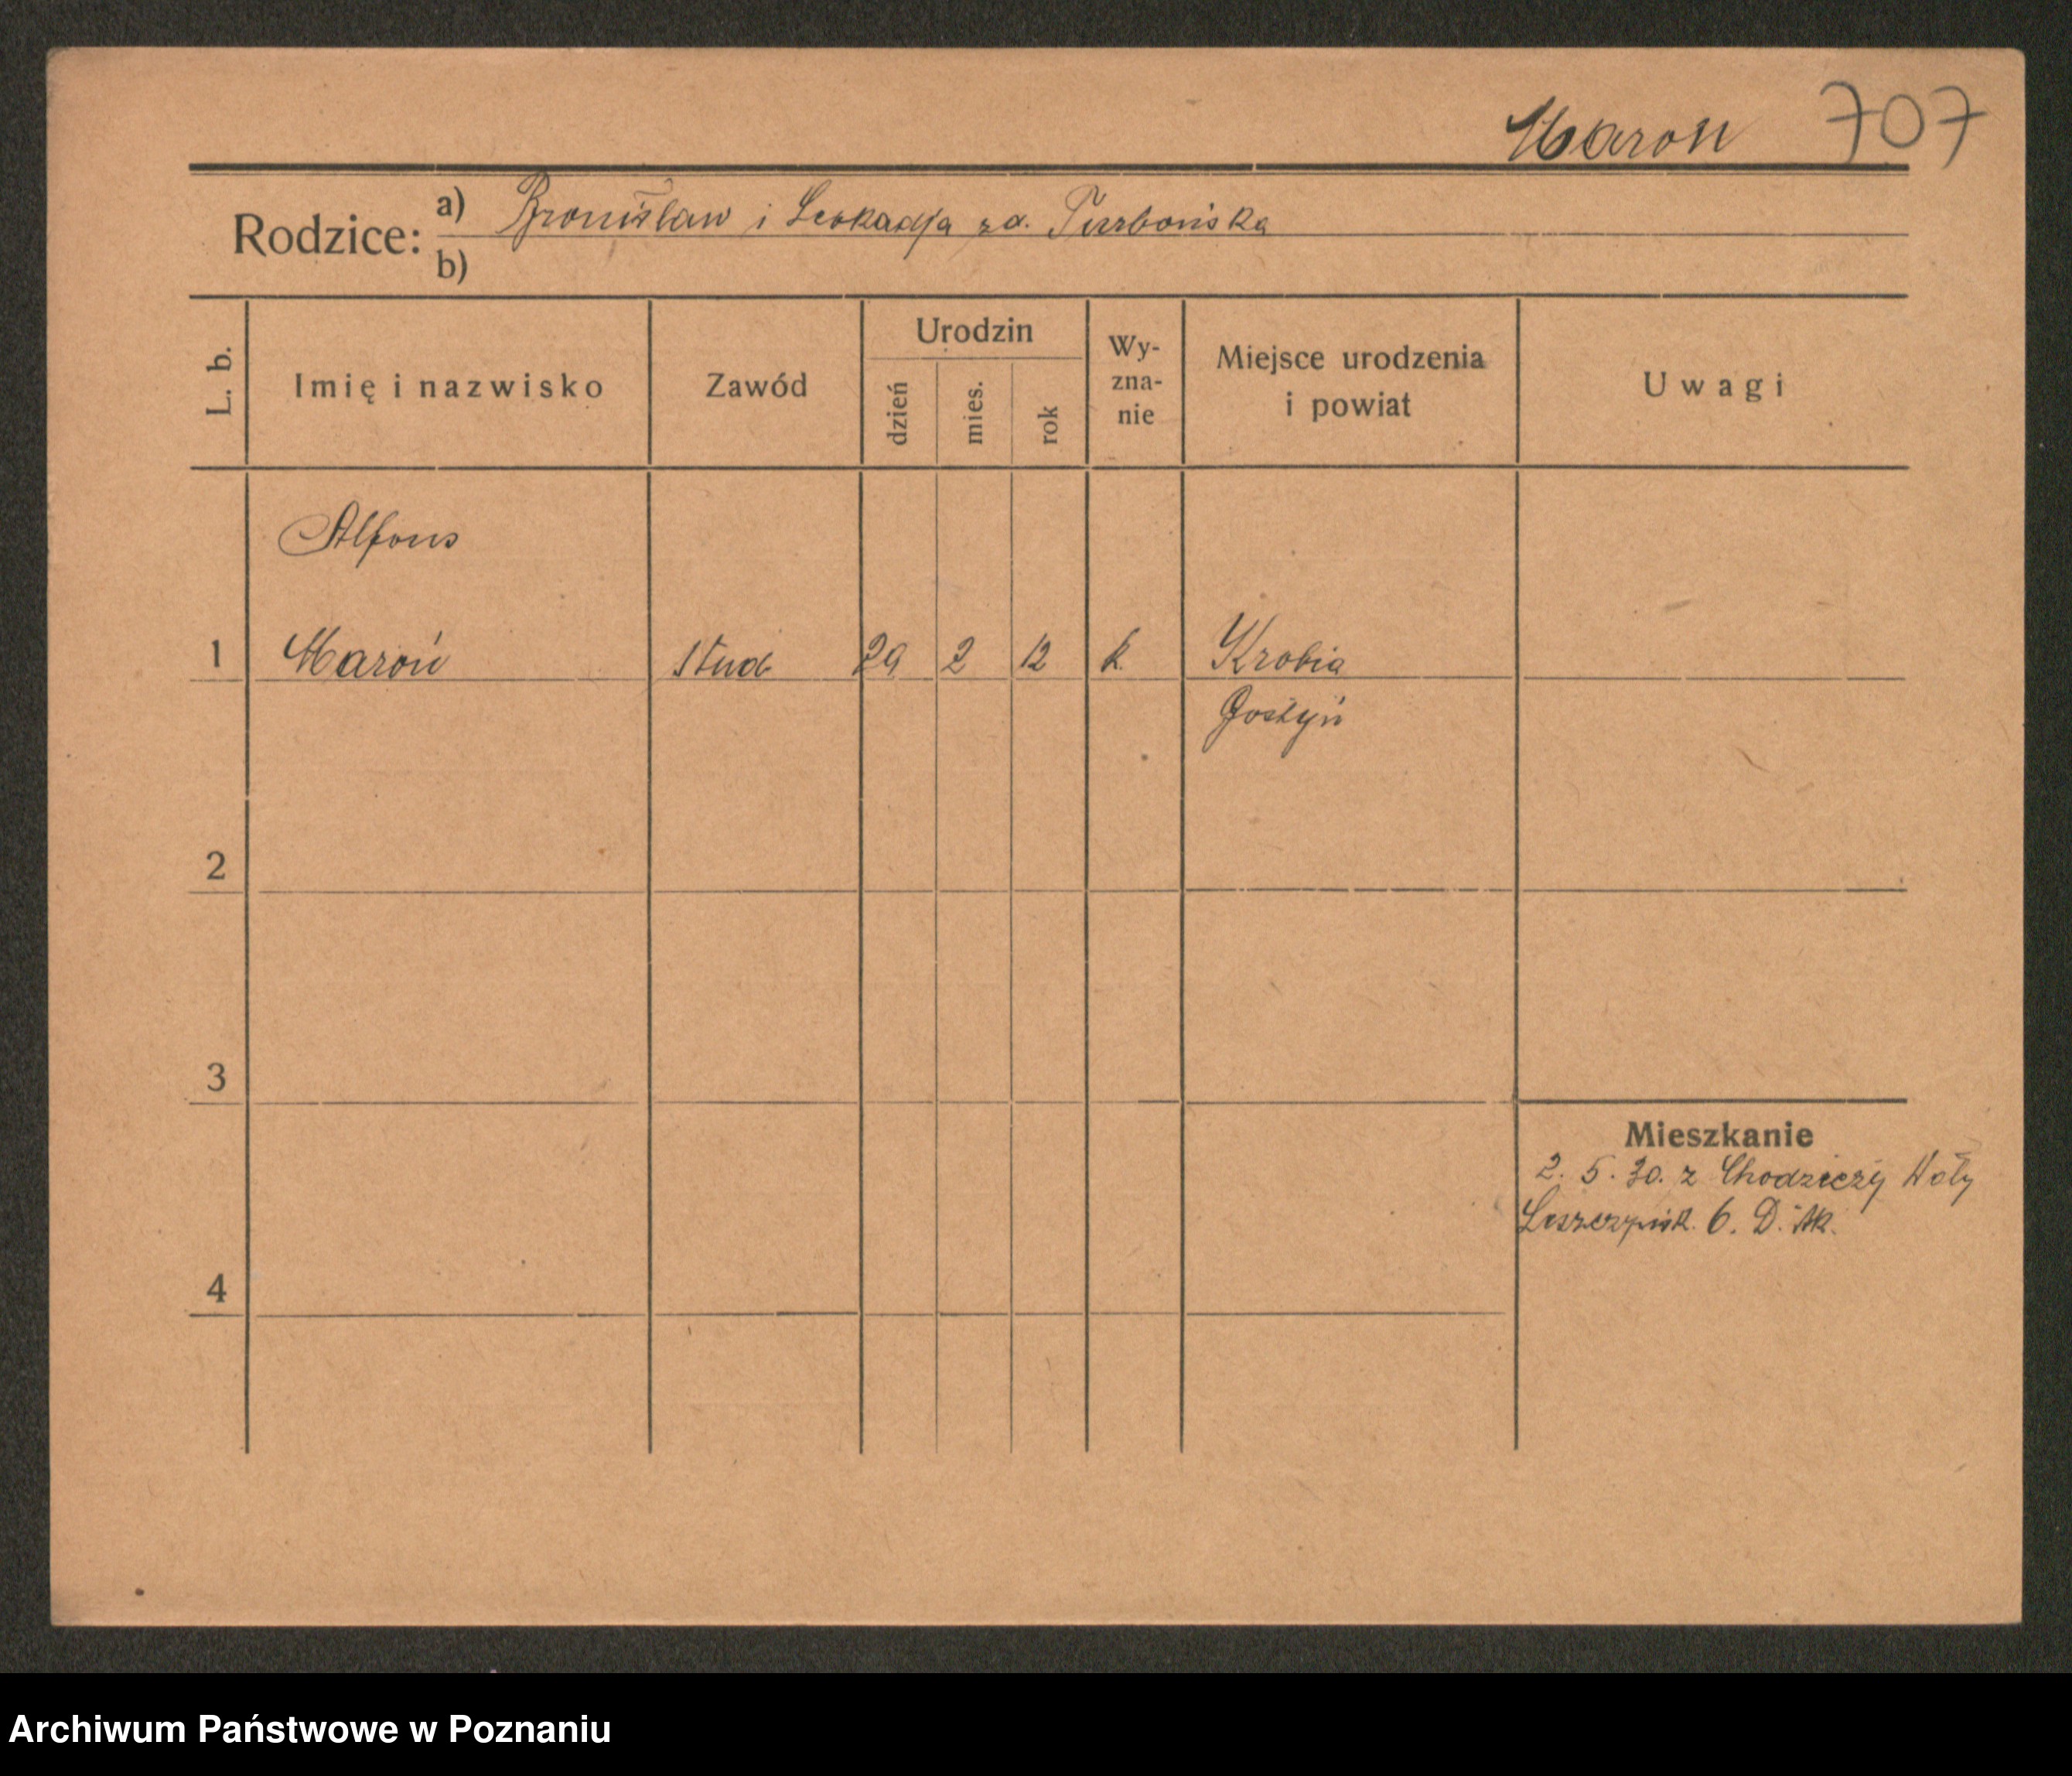 Maroń 707
Rodzice: a) Bronisław i Leokadja zd. Turbańska
b)
L. b. Imię i nazwisko Zawód Urodzin dzień mies. rok Wy-zna-nie Miejsce urodzenia i powiat Uwagi
Alfons
1 Maroń stud 29 2 12 k. Krobia
Gostyń
2
3
Mieszkanie
2. 5. 30. z Chodzieży
6. D. Ak.
4
Archiwum Państwowe w Poznaniu